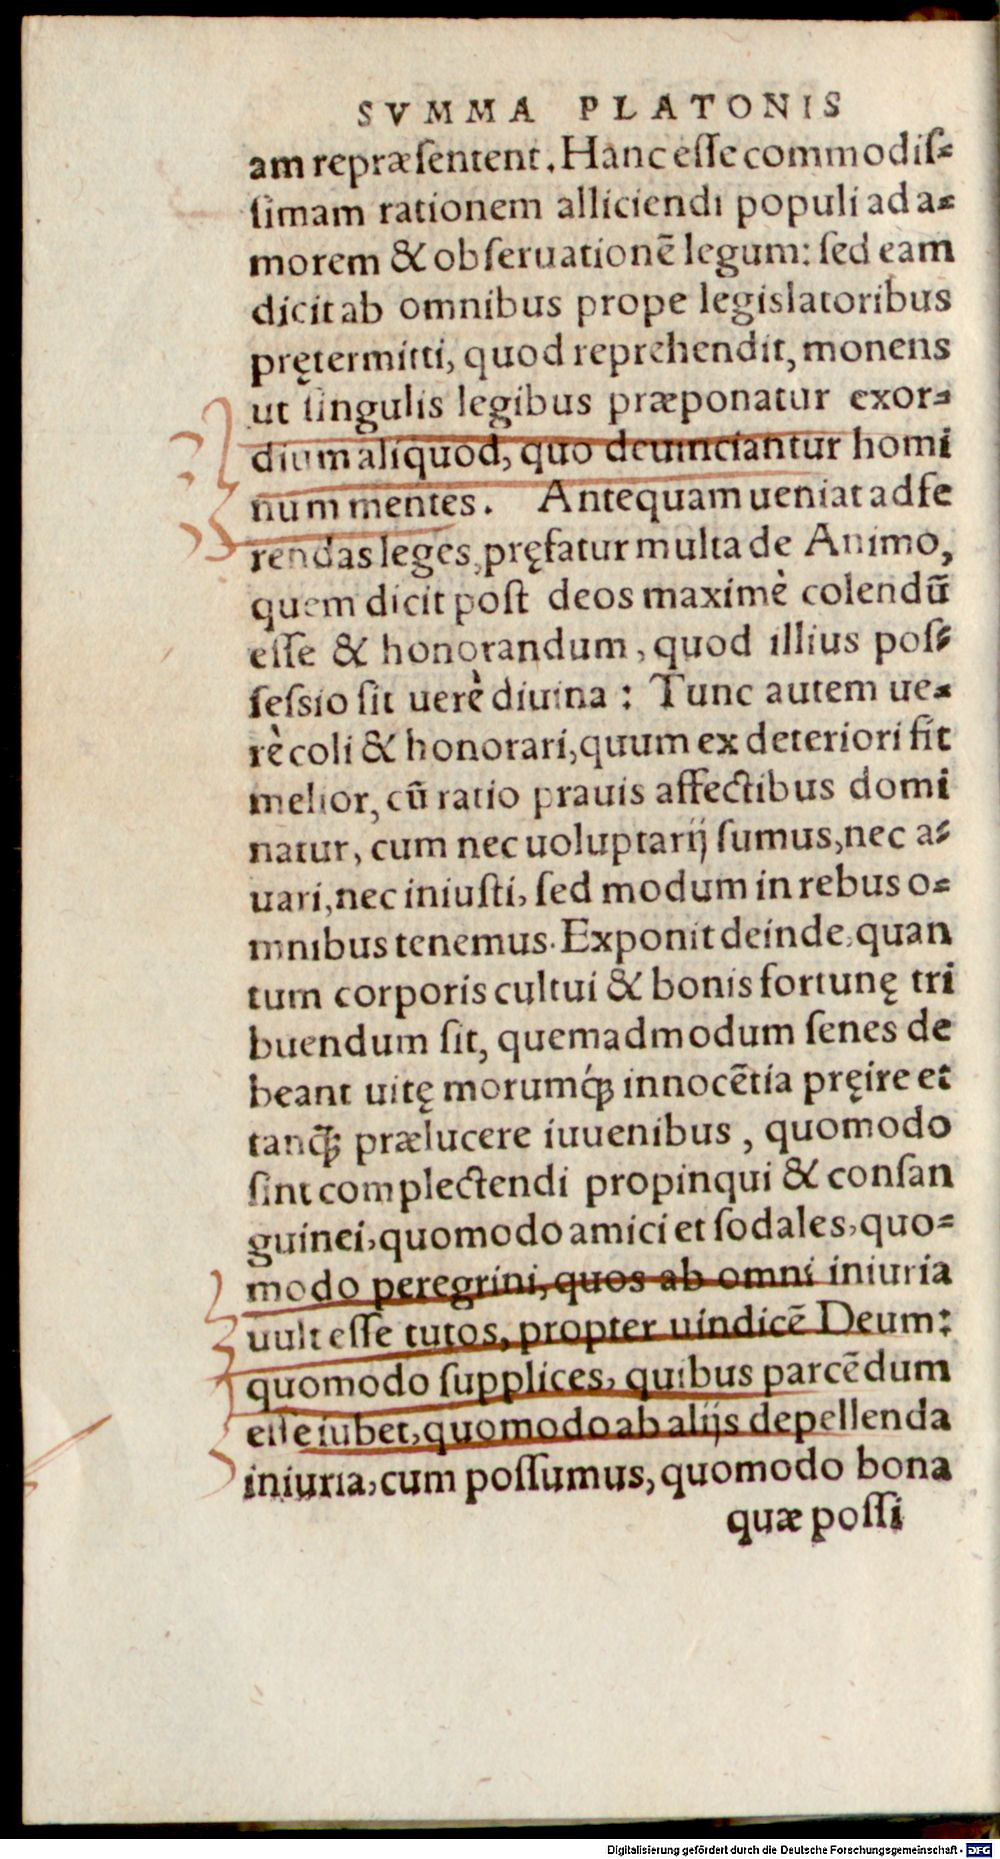 SVMMA PLATONIS
am repræſentent. Hanc eſſe commodiſ-
ſimam rationem alliciendi populi ad a-
morem & obſeruationē legum: ſed eam
dicit ab omnibus prope legislatoribus
prętermitti, quod reprehendit, monens
ut ſingulis legibus præponatur exor-
dium aliquod, quo deuinciantur homi
num mentes. Antequam ueniat ad fe
rendas leges, pręfatur multa de Animo,
quem dicit poſt deos maximè colendū
eſſe & honorandum, quod illius poſ-
ſeſsio ſit uerè diuina: Tunc autem ue-
rè coli & honorari, quum ex deteriori fit
melior, cū ratio prauis affectibus domi
natur, cum nec uoluptarij ſumus, nec a-
uari, nec iniuſti, ſed modum in rebus o-
mnibus tenemus. Exponit deinde, quan
tum corporis cultui & bonis fortunę tri
buendum ſit, quemadmodum ſenes de
beant uitę morumq́ꝫ innocētia pręire et
tanq̃ꝫ prælucere iuuenibus, quomodo
ſint complectendi propinqui & conſan
guinei, quomodo amici et ſodales, quo-
modo peregrini, quos ab omni iniuria
uult eſſe tutos, propter uindicē Deum:
quomodo ſupplices, quibus parcēdum
eſſe iubet, quomodo ab alijs depellenda
iniuria, cum poſſumus, quomodo bona
quæ poſſi
Digitalisierung gefördert durch die Deutsche Forschungsgemeinschaft - DFG